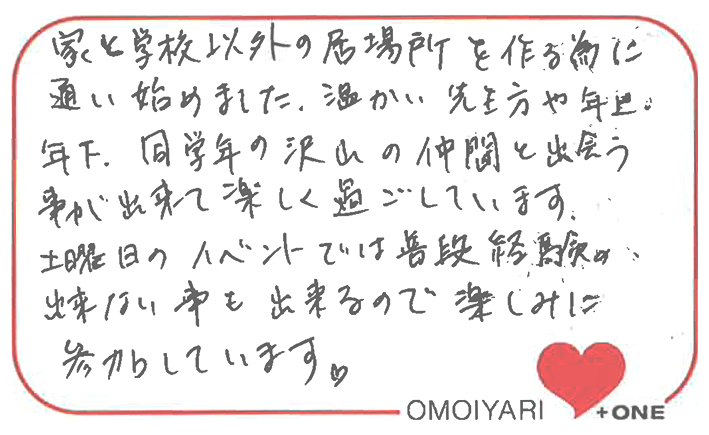 家と学校以外の居場所を作る為に
通い始めました。温かい先生方や年上。
年下、同学年の沢山の仲間と出会う
事が出来て楽しく過ごしています。
土曜日のイベントでは普段経験の
出来ない事も出来るので楽しみに
参加しています。
OMOIYARI +ONE